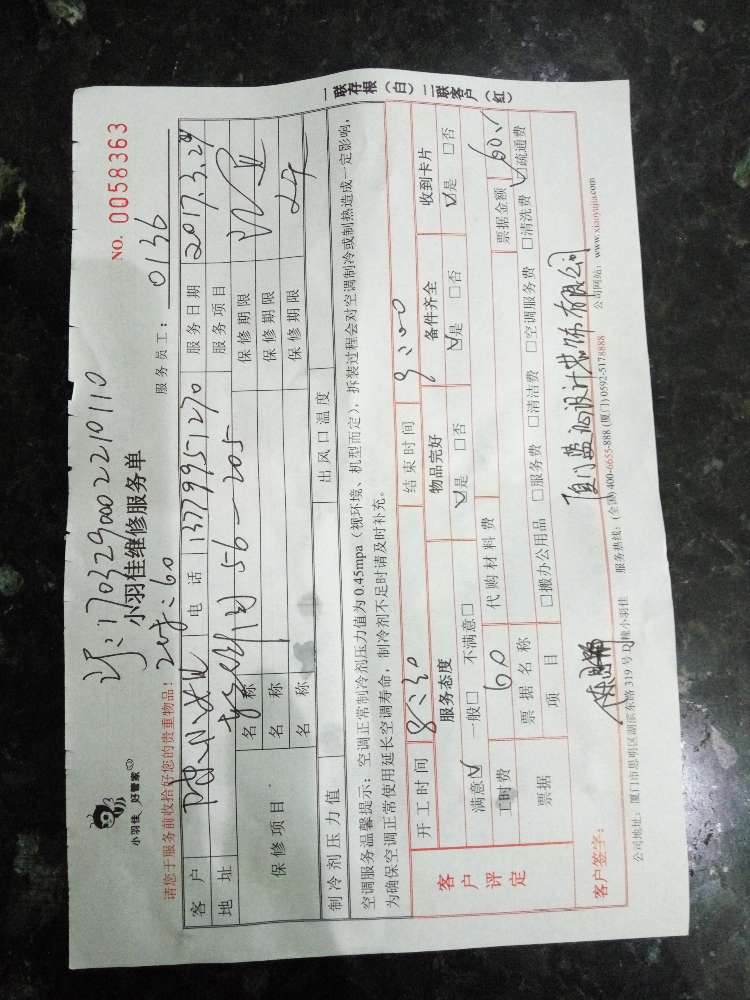 一联存根（白）二联客户（红）
NO. 0058363
170329000 2210110
小羽佳 好管家
小羽佳维修服务单
服务员工： 0136
请您于服务前收拾好您的贵重物品！
60
客户 电话 13779951270 服务日期 2017.3.29
地址 56—205 服务项目
保修项目 名称 保修期限
名称 保修期限
名称 保修期限
制冷剂压力值 出风口温度
空调服务温馨提示：空调正常制冷剂压力值为0.45mpa（视环境、机型而定），拆装过程会对空调制冷或制热造成一定影响，
为确保空调正常使用延长空调寿命，制冷剂不足时请及时补充。
开工时间 8:30 结束时间 9:00
客户评定 服务态度 物品完好 备件齐全 收到卡片
满意☑ 一般□ 不满意□ ☑是 □否 ☑是 □否 ☑是 □否
工时费 60 代购材料费 票据金额 60
票据 票据名称
项目 □搬办公用品 □服务费 □清洁费 □空调服务费 □清洗费 ☑疏通费
客户签字： 厦门蓝海设计装饰有限公司
公司地址：厦门市思明区湖滨东路319号D幢小羽佳 服务热线：(全国)400-6655-888 (厦门) 0592-5178888 公司网站：www.xiaoyujia.com